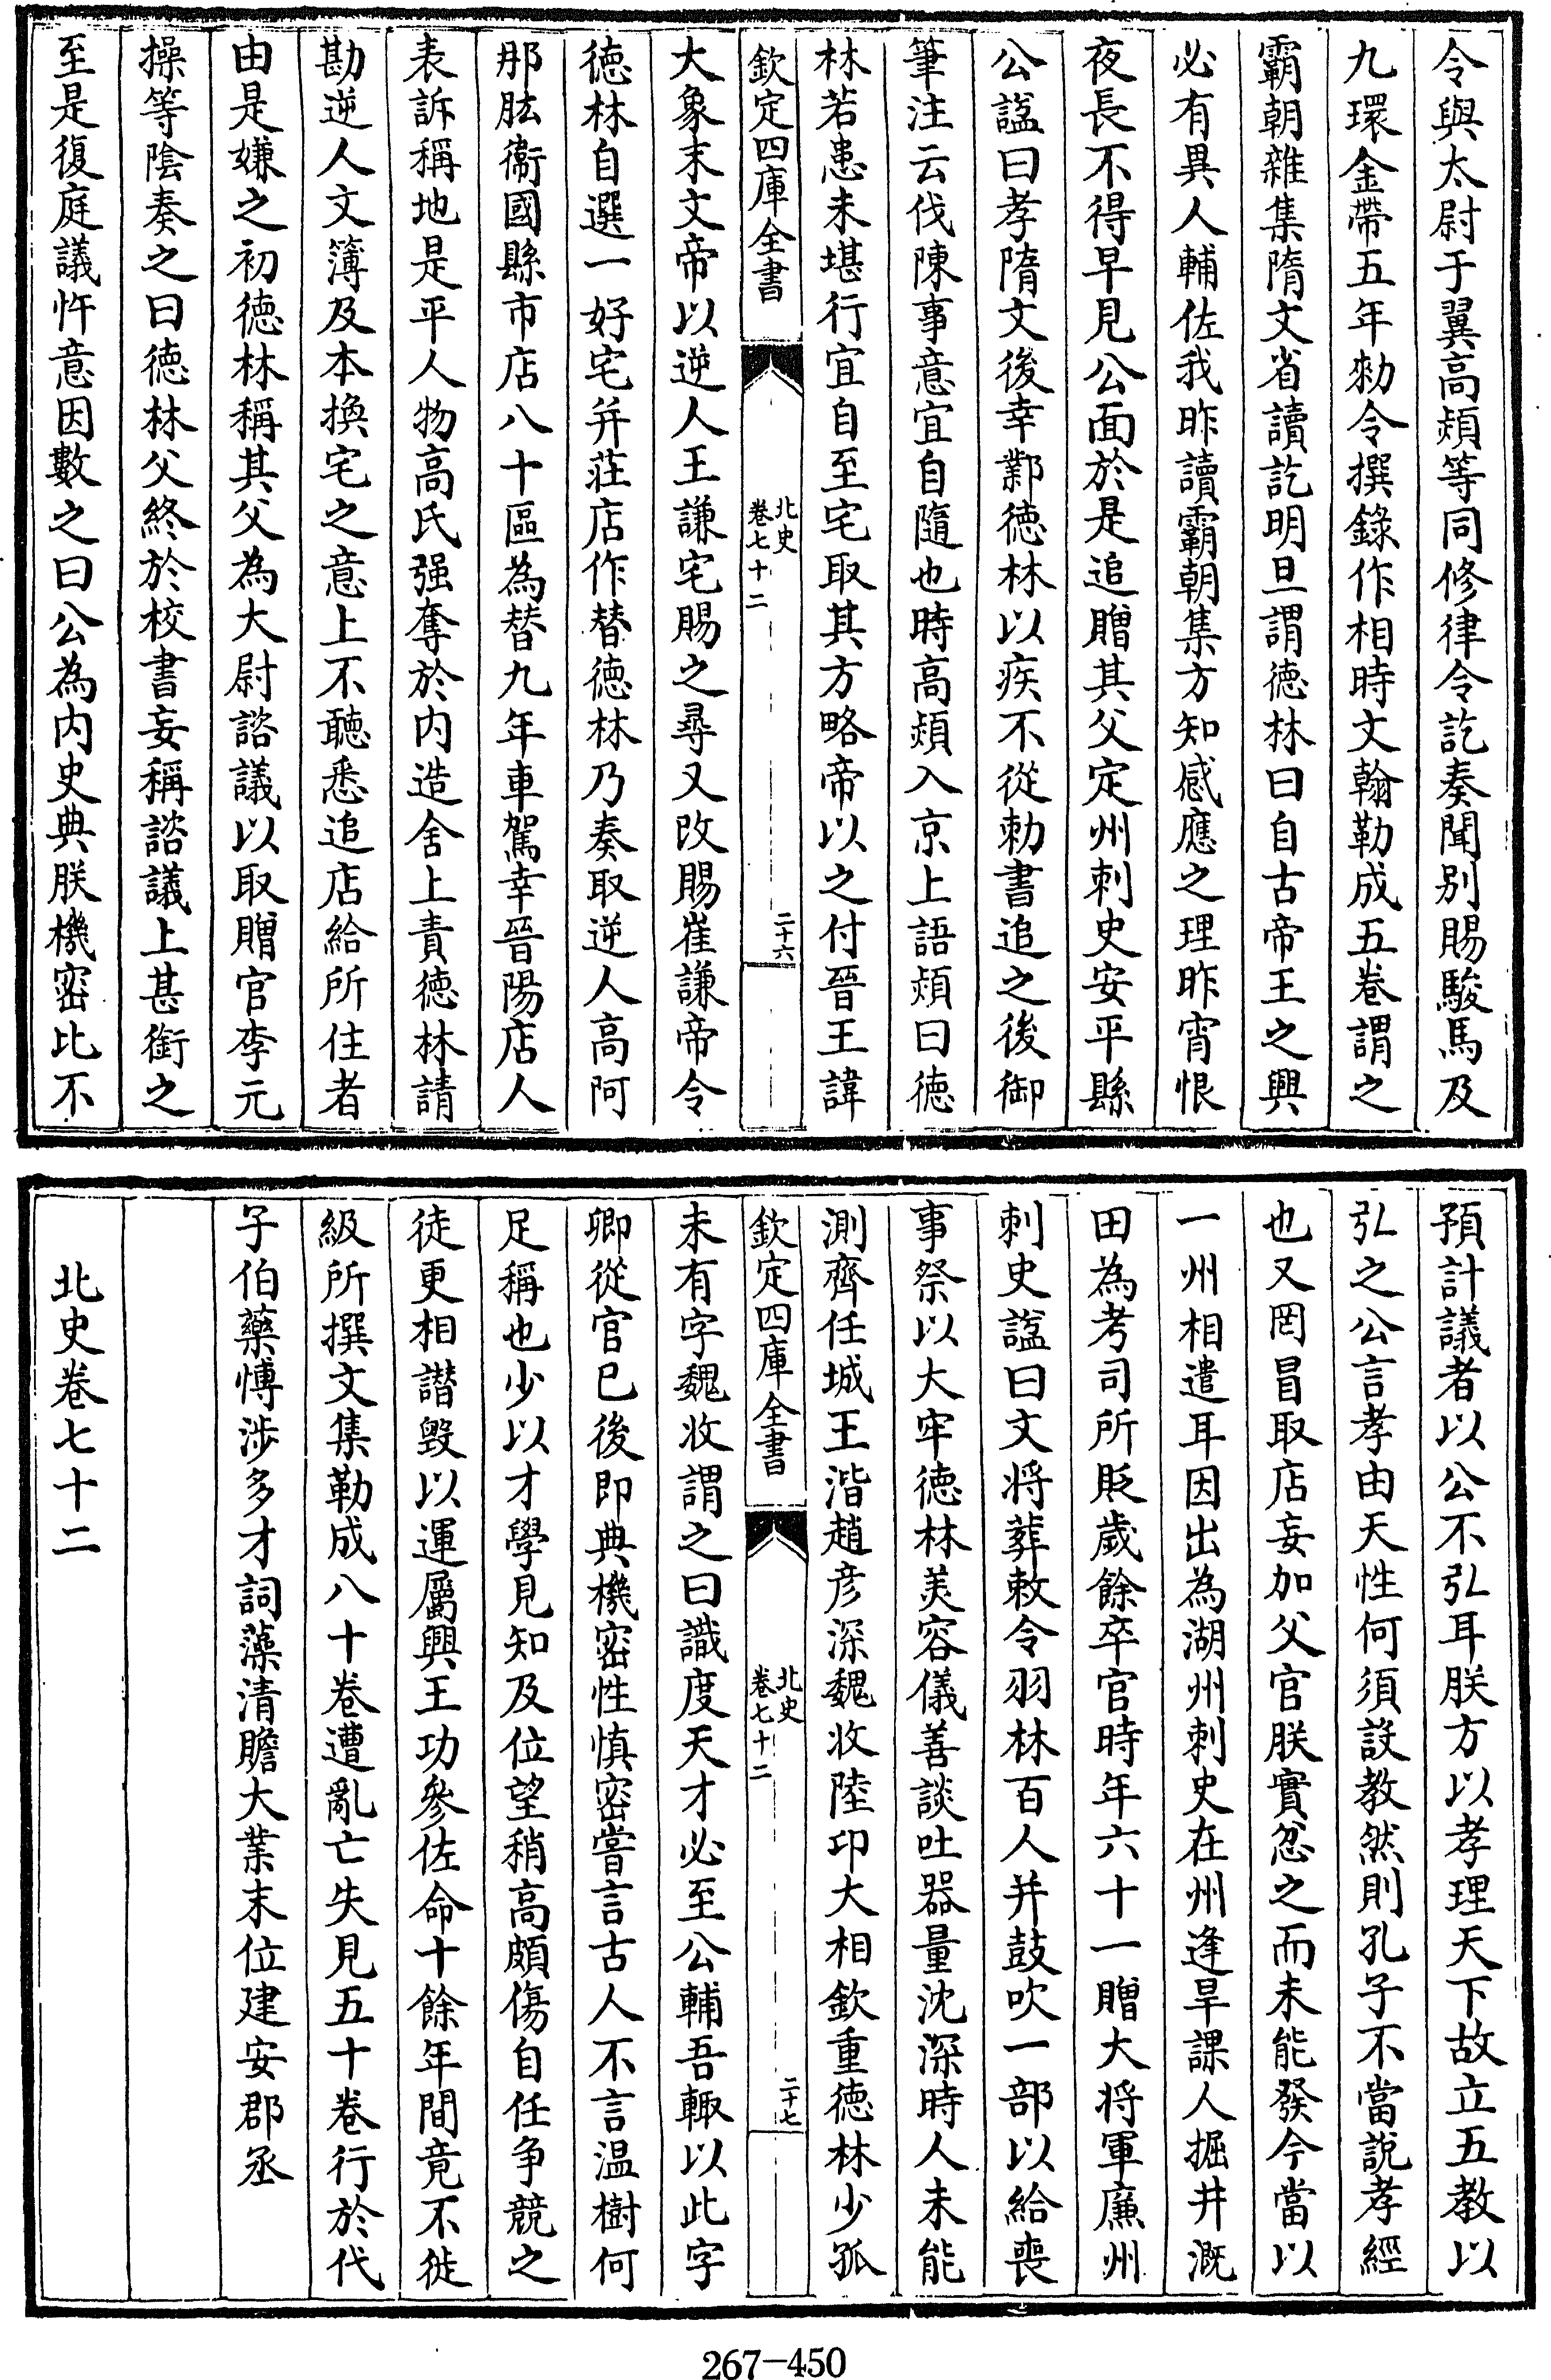 令與太尉于翼高熲等同修律令訖奏聞别賜駿馬及
九環金帶五年勑令撰錄作相時文翰勒成五卷謂之
霸朝雜集隋文省讀訖明旦謂徳林曰自古帝王之興
必有異人輔佐我昨讀霸朝集方知感應之理昨宵恨
夜長不得早見公面於是追贈其父定州刺史安平縣
公諡曰孝隋文後幸鄴徳林以疾不從勅書追之後御
筆注云伐陳事意宜自隨也時高熲入京上語熲曰徳
林若患未堪行宜自至宅取其方略帝以之付晉王諱
欽定四庫全書
北史
卷七十二
二十六
大象末文帝以逆人王謙宅賜之尋又改賜崔謙帝令
徳林自選一好宅并莊店作替徳林乃奏取逆人高阿
那肱衞國縣市店八十區為替九年車駕幸晉陽店人
表訴稱地是平人物高氏强奪於内造舍上責徳林請
勘逆人文簿及本換宅之意上不聽悉追店給所住者
由是嫌之初徳林稱其父為大尉諮議以取贈官李元
操等陰奏之曰徳林父終於校書妄稱諮議上甚銜之
至是復庭議忤意因數之曰公為内史典朕機密比不
預計議者以公不弘耳朕方以孝理天下故立五教以
弘之公言孝由天性何須設教然則孔子不當說孝經
也又罔冒取店妄加父官朕實忿之而未能發今當以
一州相遣耳因出為湖州刺史在州逢旱課人掘井溉
田為考司所貶歲餘卒官時年六十一贈大將軍廉州
刺史諡曰文將葬敕令羽林百人并鼓吹一部以給喪
事祭以大牢徳林美容儀善談吐器量沈深時人未能
測齊任城王湝趙彦深魏收陸卬大相欽重徳林少孤
欽定四庫全書
北史
卷七十二
二十七
未有字魏收謂之曰識度天才必至公輔吾輙以此字
卿從官已後即典機密性慎密嘗言古人不言温樹何
足稱也少以才學見知及位望稍高頗傷自任争競之
徒更相譖毁以運屬興王功參佐命十餘年間竟不徙
級所撰文集勒成八十卷遭亂亡失見五十卷行於代
子伯藥博涉多才詞藻清贍大業末位建安郡丞
北史卷七十二
267-450